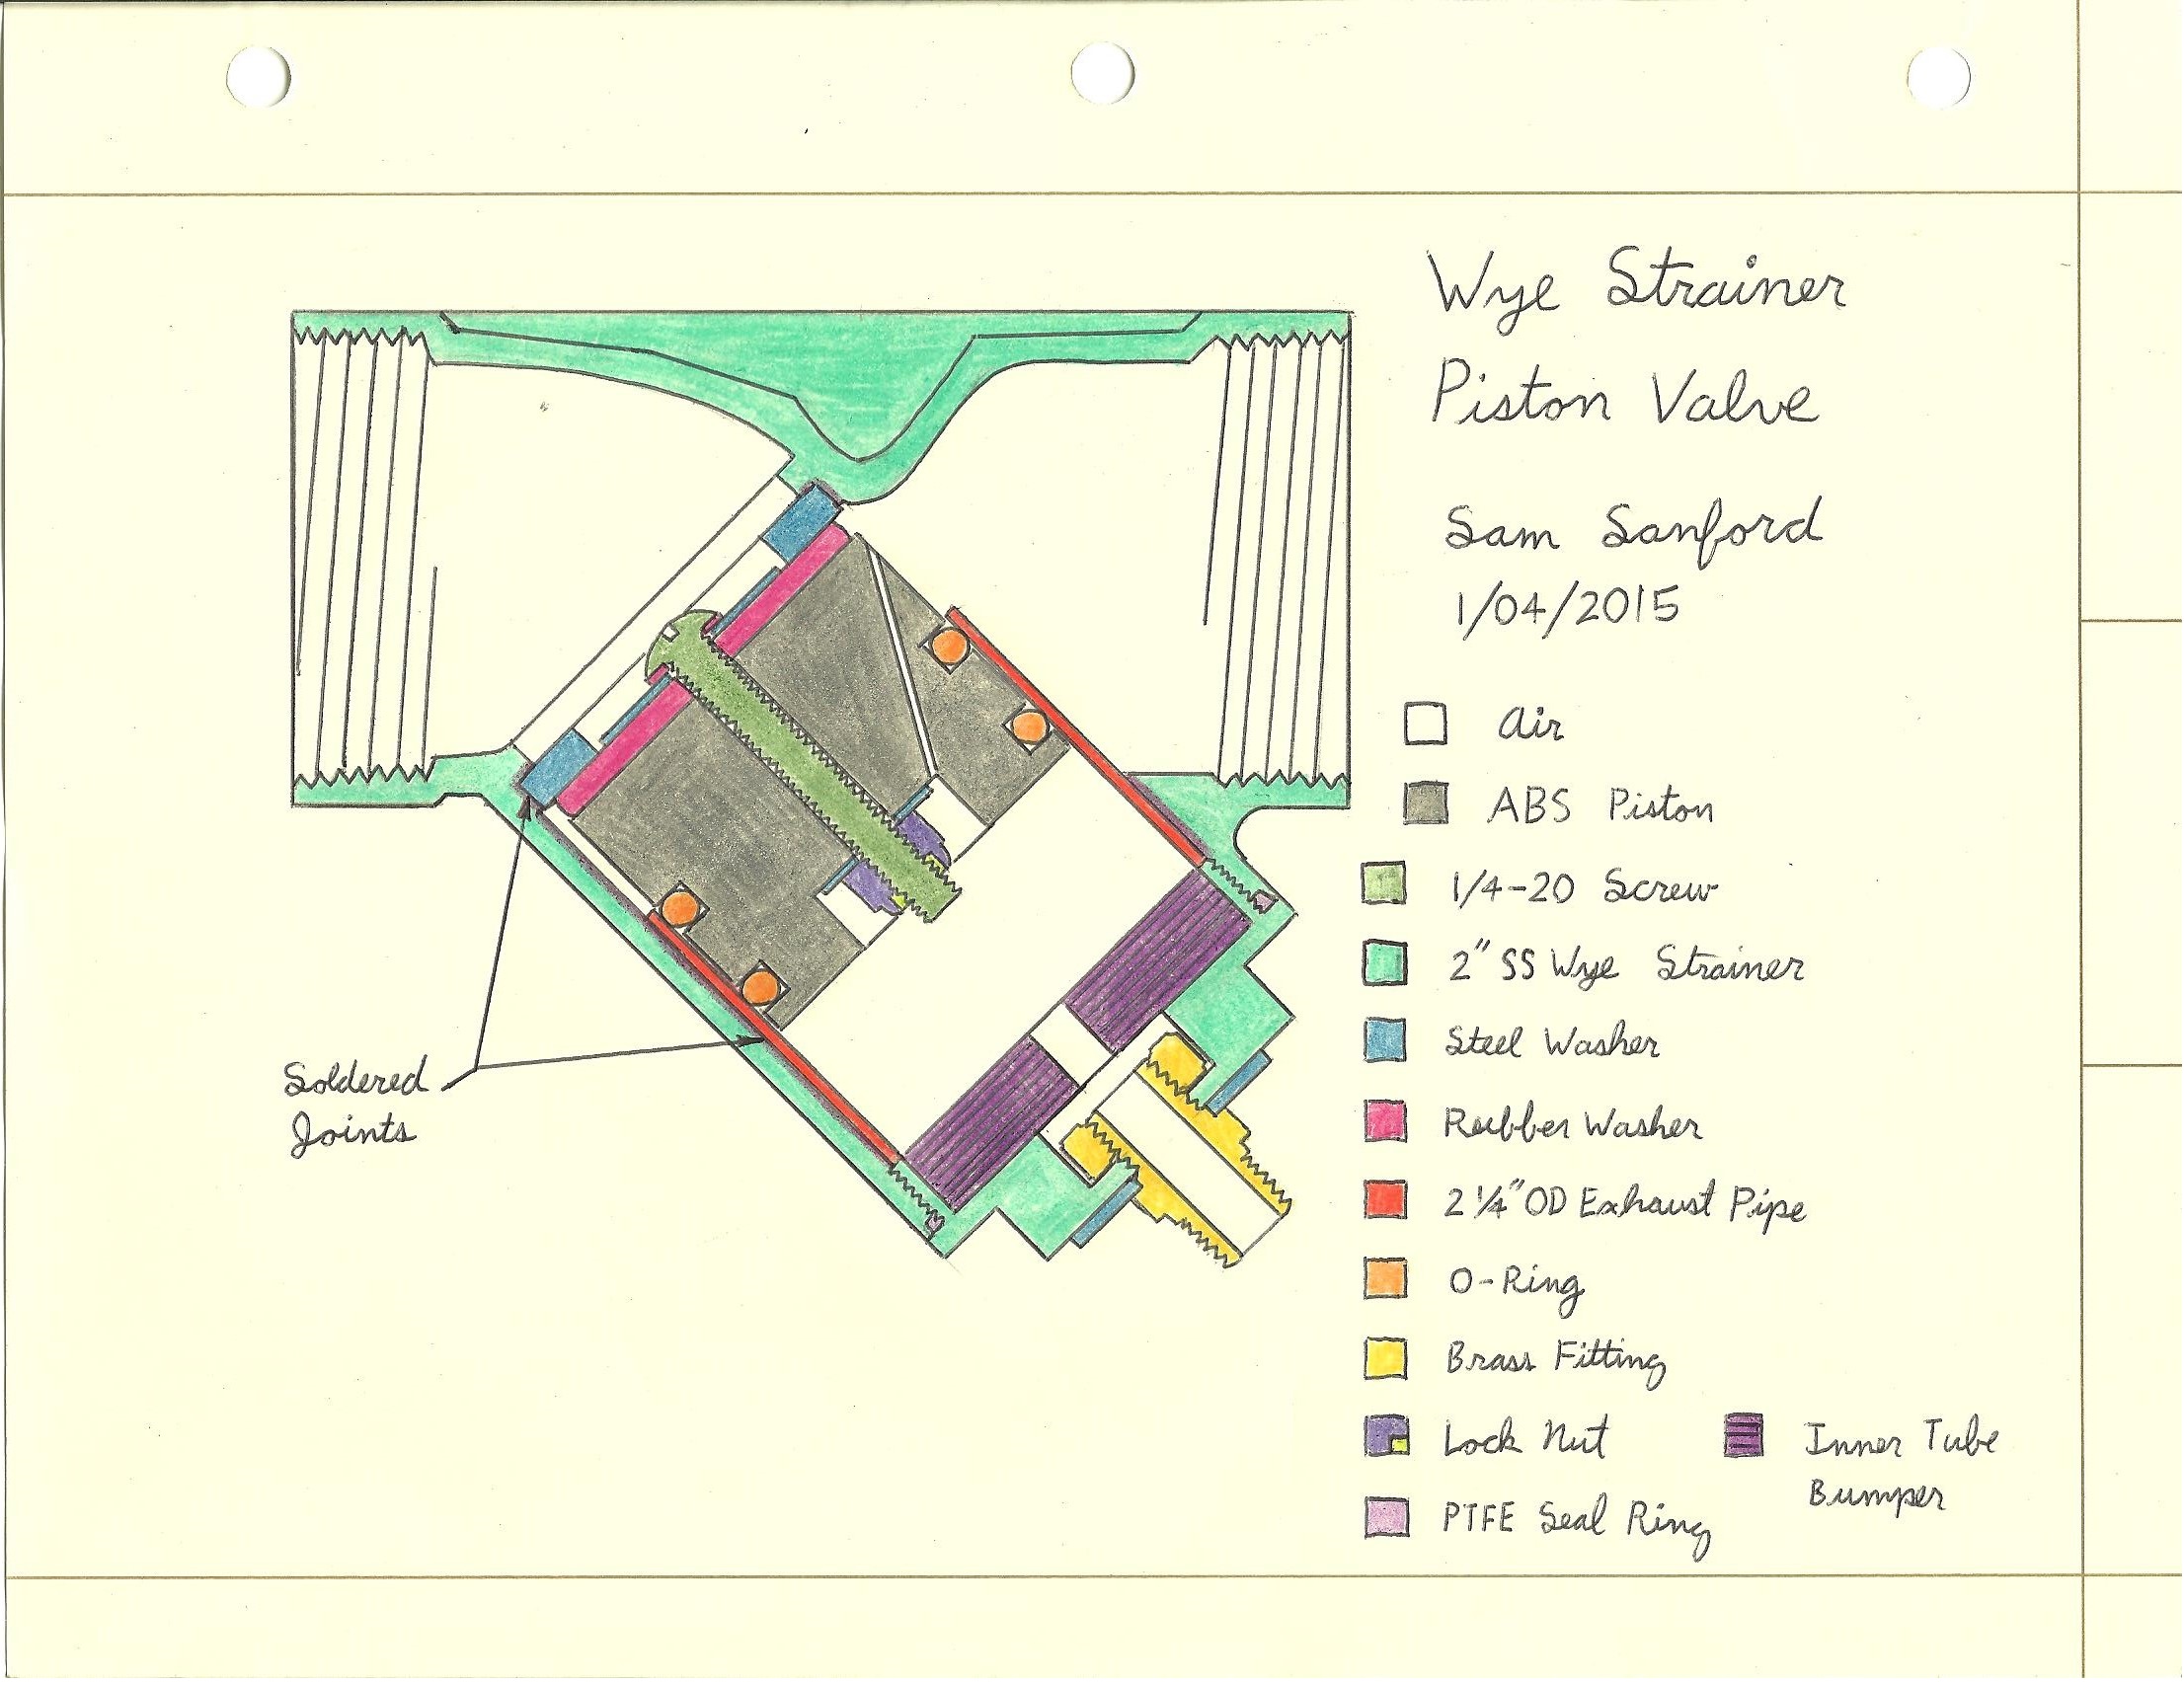 Wye Strainer
Piston Valve
Sam Sanford
1/04/2015
Air
ABS Piston
1/4-20 Screw
2" SS Wye Strainer
Steel Washer
Rubber Washer
2 1/4" OD Exhaust Pipe
O-Ring
Brass Fitting
Lock Nut
PTFE Seal Ring
Inner Tube
Bumper
Soldered
Joints